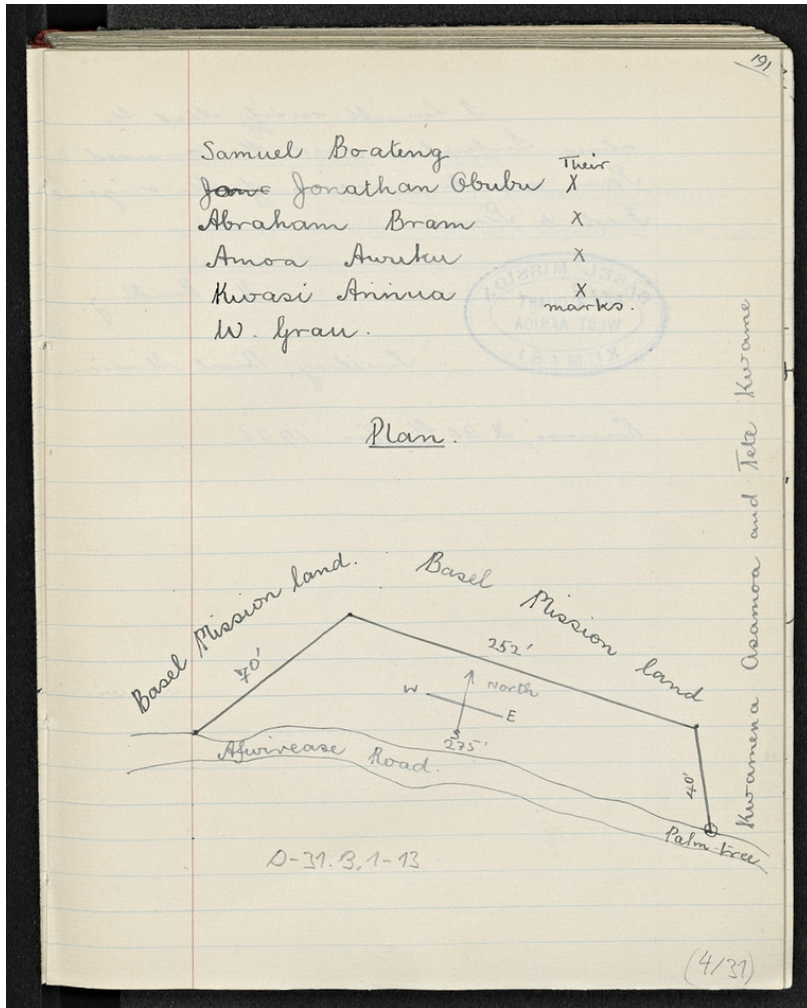 191
Samuel Boateng
Jane Jonathan Obubu Their X
Abraham Bram X
Amoa Awuku X
Kwasi Annua X
marks.
W. Grau.
Plan.
Basel Mission land.
Basel Mission land
70'
252'
W North
E
S
275'
40'
Afwirease Road.
Palm-tree
Kwamena Asamoa and Tete Kwame
D-31.B,1-13
(4/31)
BASEL MISSION
WEST AFRICA
KUMASI